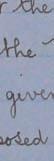 r the
the
given
posed